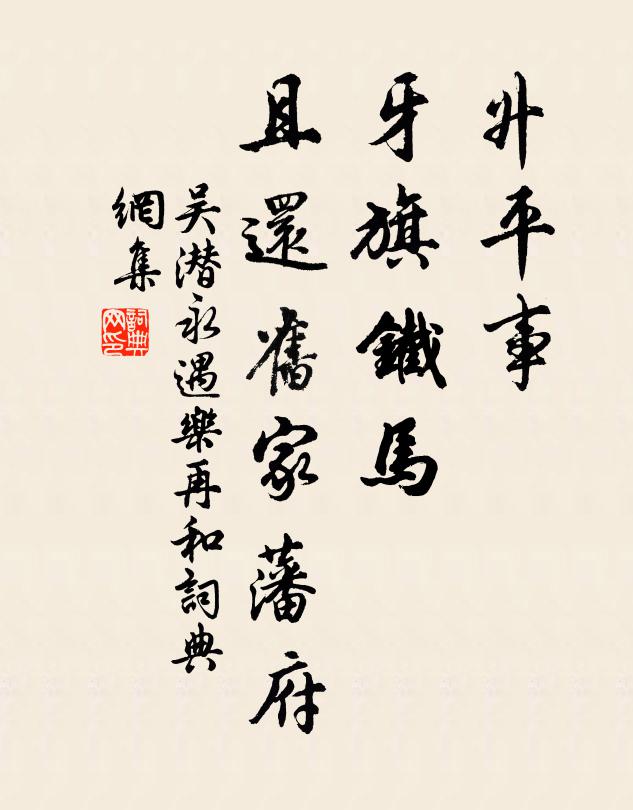 升平事
牙旗鐵馬
且還舊家藩府
吴潜永遇樂再和詞典
網集
詞典
网印